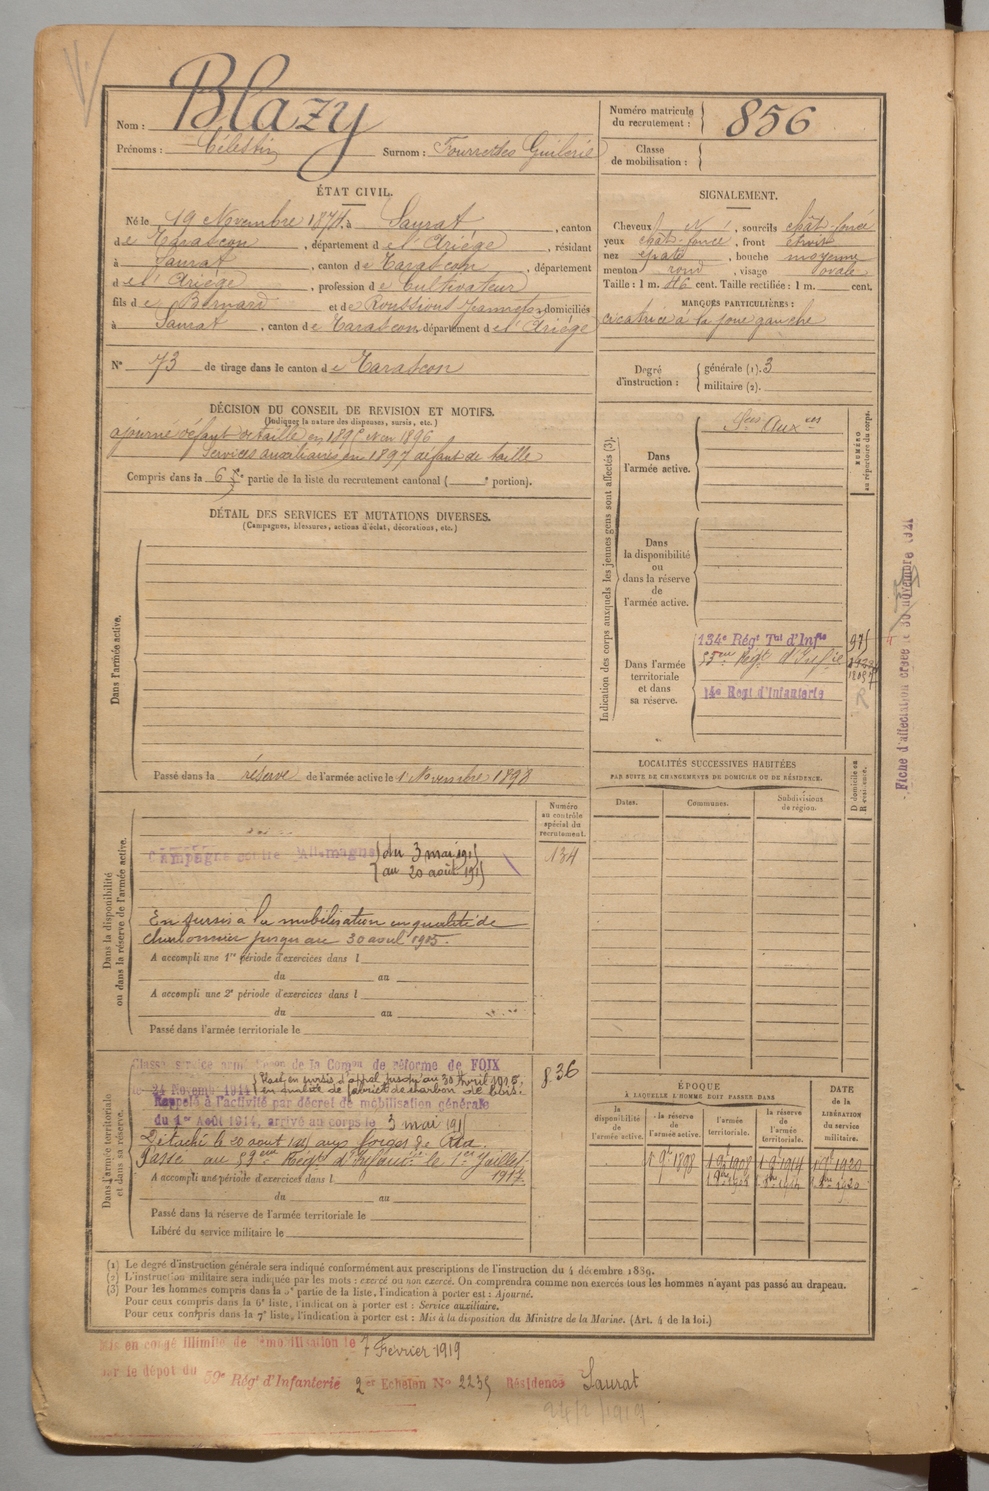 Nom : Blazy
Prénoms : Célestin Surnom :
Numéro matricule du recrutement : 856
Classe de mobilisation :
ÉTAT CIVIL.
Né le 19 Novembre 1874, à Saurat, canton
de Tarascon, département de l'Ariège, résidant
à Saurat, canton de Tarascon, département
de l'Ariège, profession de Cultivateur
fils de Bernard et de Roussions Jeanneton domiciliés
à Saurat, canton de Tarascon, département de l'Ariège
N° 73 de tirage dans le canton de Tarascon
SIGNALEMENT.
Cheveux N, sourcils chât-foncé
yeux chât-foncé, front étroit
nez épaté, bouche moyenne
menton rond, visage ovale
Taille : 1 m. 46 cent. Taille rectifiée : 1 m. cent.
MARQUES PARTICULIÈRES :
cicatrice à la joue gauche
Degré d'instruction : générale (1). 3
militaire (2).
DÉCISION DU CONSEIL DE REVISION ET MOTIFS.
(Indiquer la nature des dispenses, sursis, etc.)
ajourné défaut de taille en 1895 et en 1896
Services auxiliaires en 1897 défaut de taille
Compris dans la 6e partie de la liste du recrutement cantonal ( e portion).
DÉTAIL DES SERVICES ET MUTATIONS DIVERSES.
(Campagnes, blessures, actions d'éclat, décorations, etc.)
Dans l'armée active.
Passé dans la réserve de l'armée active le 1 Novembre 1898
Indication des corps auxquels les jeunes gens sont affectés (3).
NUMÉRO au répertoire du corps.
Dans l'armée active.
Sces Auxres
Dans la disponibilité ou dans la réserve de l'armée active.
Dans l'armée territoriale et dans sa réserve.
134e Régt Tal d'Infie 975
53ème Régt d'Infie
14e Regt d'Infanterie
R
Fiche d'affectation créée le 30 novembre 1921
LOCALITÉS SUCCESSIVES HABITÉES
PAR SUITE DE CHANGEMENTS DE DOMICILE OU DE RÉSIDENCE.
Dates. Communes. Subdivisions de région. D domicile ou R résidence.
Dans la disponibilité ou dans la réserve de l'armée active.
Numéro au contrôle spécial du recrutement.
134
Campagne contre l'Allemagne du 3 mai 1915
au 20 août 1915
En sursis à la mobilisation en qualité de
charbonnier jusqu'au 30 avril 1915.
A accompli une 1re période d'exercices dans l
du au
A accompli une 2e période d'exercices dans l
du au
Passé dans l'armée territoriale le
Dans l'armée territoriale et dans sa réserve.
Classé service armé de la Comm de réforme de FOIX
le 24 Novemb 1914 Placé en sursis d'appel jusqu'au 30 Avril 1915.
en qualité de fabrict de charbon de bois.
Rappelé à l'activité par décret de mobilisation générale
du 1er Août 1914, arrivé au corps le 3 mai 1915
Détaché le 20 aout 1915 aux forges de Ria.
Passé au 53ème Régt d'Infanie le 1er Juillet
1917
A accompli une période d'exercices dans l
du au
Passé dans la réserve de l'armée territoriale le
Libéré du service militaire le
836
ÉPOQUE
À LAQUELLE L'HOMME DOIT PASSER DANS
la disponibilité de l'armée active. la réserve de l'armée active. l'armée territoriale. la réserve de l'armée territoriale.
DATE de la LIBÉRATION du service militaire.
1 9e 1898 1 9e 1908 1 9e 1914 1 9e 1920
(1) Le degré d'instruction générale sera indiqué conformément aux prescriptions de l'instruction du 4 décembre 1889.
(2) L'instruction militaire sera indiquée par les mots : exercé ou non exercé. On comprendra comme non exercés tous les hommes n'ayant pas passé au drapeau.
(3) Pour les hommes compris dans la 5e partie de la liste, l'indication à porter est : Ajourné.
Pour ceux compris dans la 6e liste, l'indication à porter est : Service auxiliaire.
Pour ceux compris dans la 7e liste, l'indication à porter est : Mis à la disposition du Ministre de la Marine. (Art. 4 de la loi.)
Mis en congé illimité de démobilisation le 7 Fevrier 1919
par le dépôt du 59e Régt d'Infanterie 2er Echelon No 2235 Résidence Saurat
24/2/1919